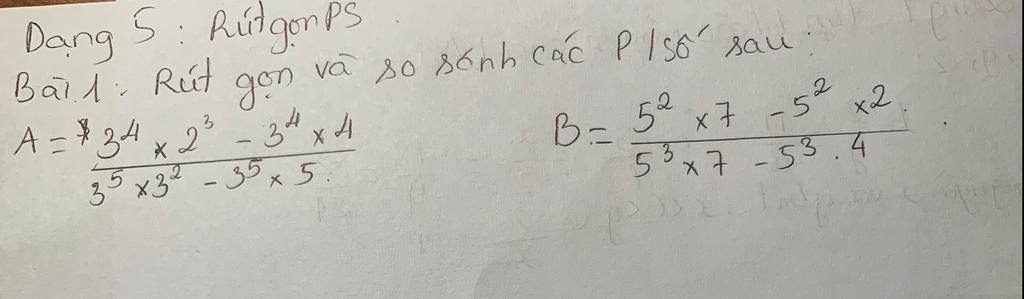 Dạng 5 : Rút gọn PS .
Bài 1 : Rút gọn và so sánh các P/số sau :
A = (3⁴ × 2³ - 3⁴ × 4) / (3⁵ × 3² - 3⁵ × 5.)
B = (5² × 7 - 5² × 2.) / (5³ × 7 - 5³ . 4) .